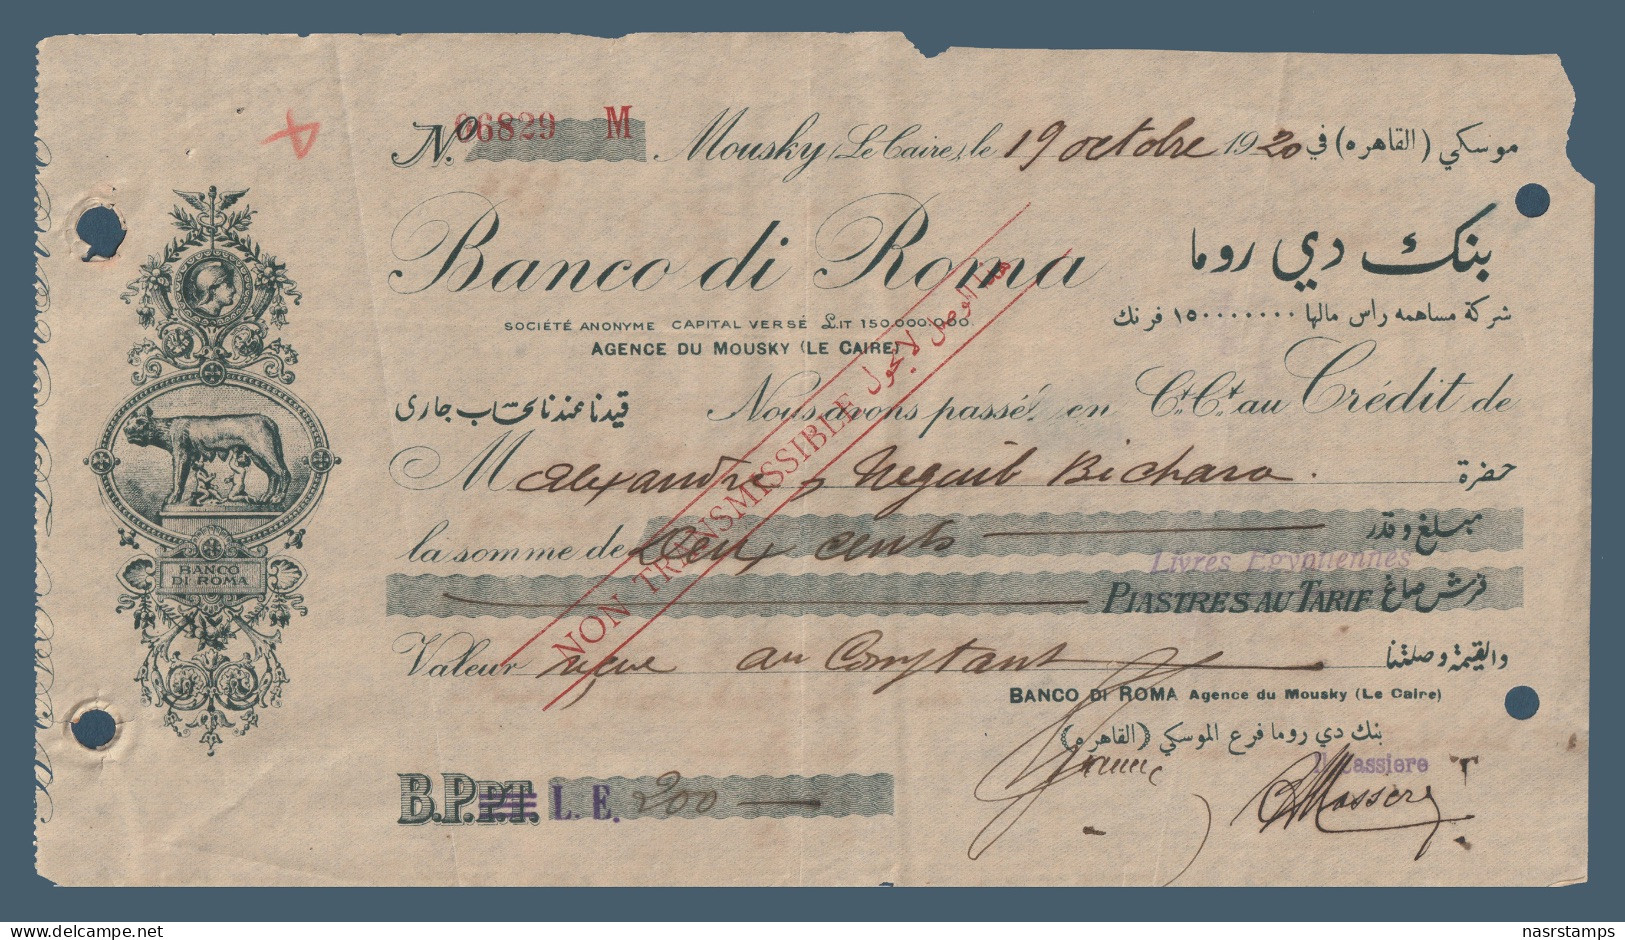 4
No. 06829 M Mousky (Le Caire), le 19 octobre 1920 موسكي (القاهره) في
Banco di Roma بنك دي روما
SOCIÉTÉ ANONYME CAPITAL VERSÉ £.IT 150.000.000. شركة مساهمه راس مالها ١٥٠٠٠٠٠٠٠ فرنك
AGENCE DU MOUSKY (LE CAIRE)
قيدنا عندنا بحساب جارى Nous avons passé en Ct. Ct. au Crédit de
M Alexandre Neguib Bichara. حضرة
la somme de Deux cents مبلغ وقدر
Livres Egyptiennes
PIASTRES AU TARIF قرش صاغ
Valeur reçue au Comptant والقيمة وصلتنا
NON TRANSMISSIBLE هذا الوصل لا يحول
BANCO DI ROMA Agence du Mousky (Le Caire)
بنك دي روما فرع الموسكي (القاهره)
Il Cassiere
B.P.P.T. L.E. 200
BANCO
DI ROMA
delcampe.net
nasrstamps